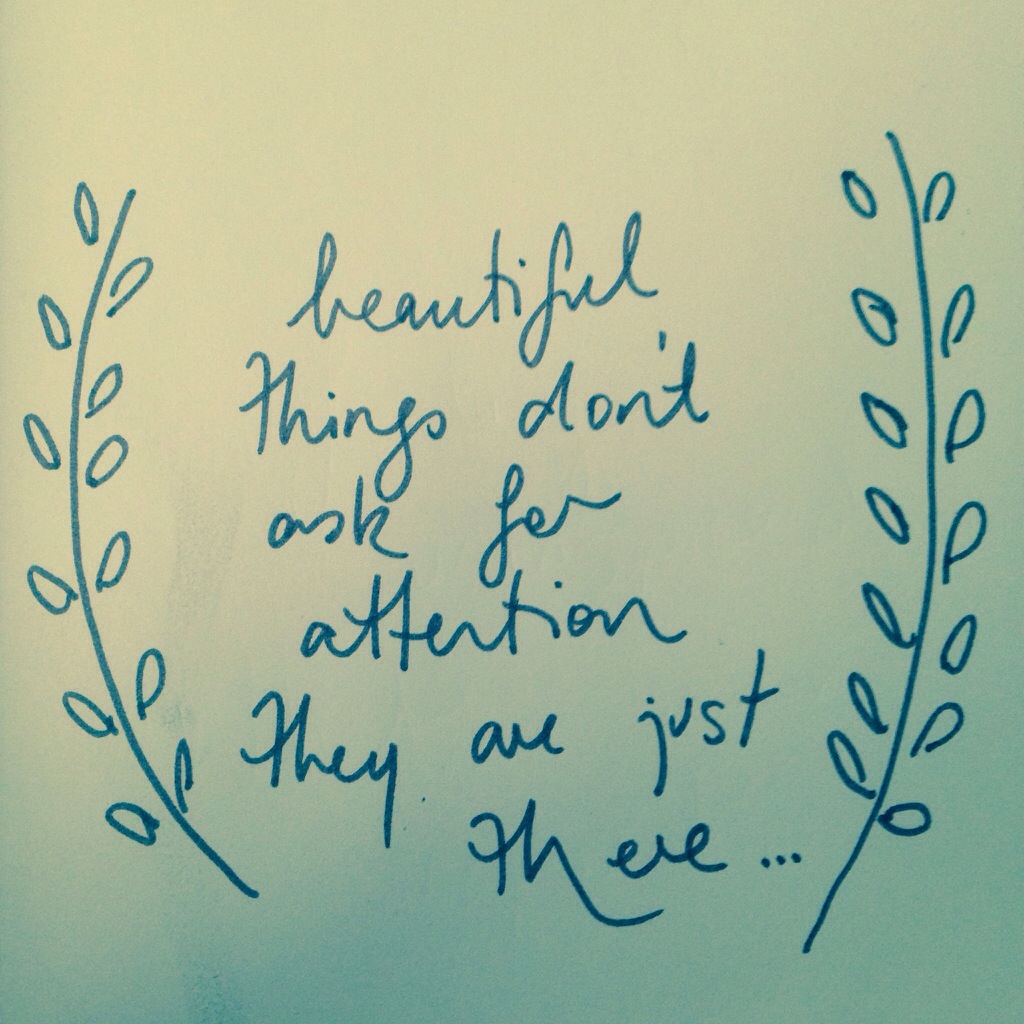 beautiful
things don't
ask for
attention
they are just
there...